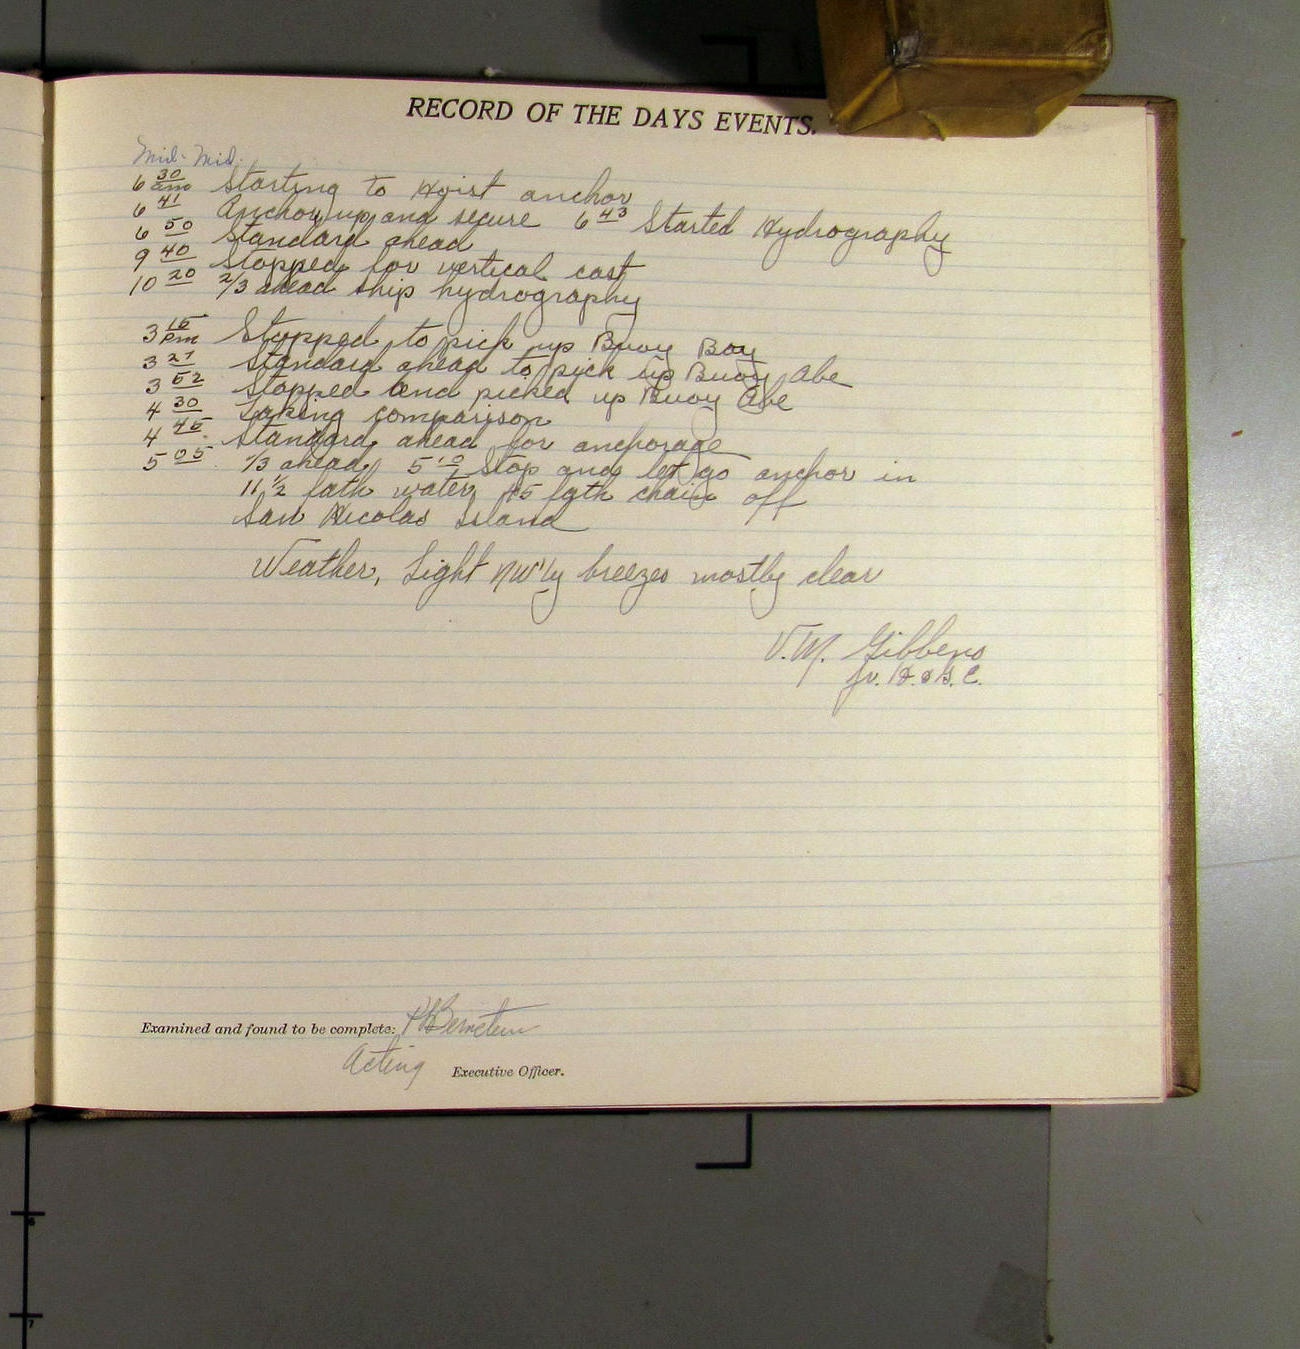 RECORD OF THE DAYS EVENTS.
Mid-Mid.
6 30 am Starting to Hoist anchor
6 41 Anchor up and secure 6 43 Started Hydrography
6 50 Standard ahead
9 40 Stopped for vertical cast
10 20 2/3 ahead ship hydrography
3 15 pm Stopped to pick up Buoy Boy
3 27 Standard ahead to pick up Buoy Abe
3 52 Stopped and picked up Buoy Abe
4 30 Taking comparison
4 45 Standard ahead for anchorage
5 05 1/3 ahead, 5 10 Stop and let go anchor in
11 1/2 fath water, 45 fath chain off
San Nicolas Island
Weather, Light NW'ly breezes mostly clear
V.M. Gibbens
Jr. H. & G. E.
Examined and found to be complete: Bernstein
Acting Executive Officer.
6
7